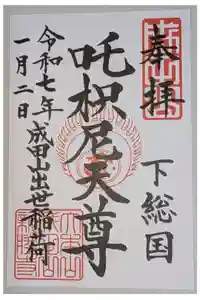 奉拝
下総国
吒枳尼天尊
令和七年
一月二日
成田出世稲荷